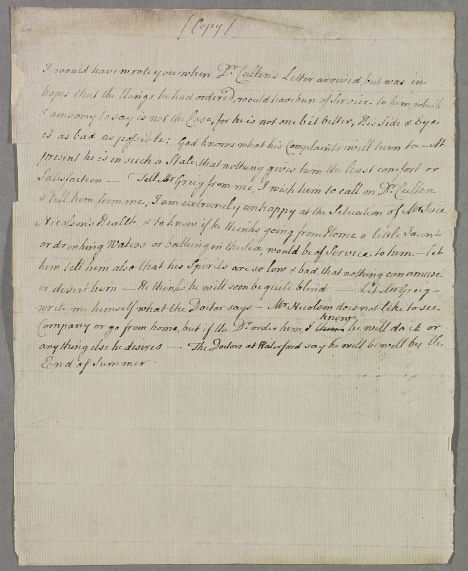 [Copy]
I would have wrote you when Dr. Cullens Letter arrived, but was in
hopes that the things he had ordered, would have been of Service to him, which
I am sorry to say is not the Case, for he is not one bit better, His Side & Eye
is as bad as possible: God knows what his Complaints will turn to — At
present he is in such a State, that nothing gives him the least comfort or
Satisfaction — Tell Mr Greig from me, I wish him to call on Dr Cullen
& tell him from me, I am extremely unhappy at the Situation of Mr
Nicolson's Health & to know if he thinks going from Home a little Jaunts
or drinking Waters or bathing in the Sea, would be of Service to him — let
him tell him also that his Spirits are so low & bad that nothing can amuse
or divert him — He thinks he will soon be quite blind — Let Mr Greig
write me himself what the Doctor says — Mr Nicolson does not like to see
Company or go from home, but if the Dr. order him, I know he will do it or
any thing else he desires — The Doctors at Waterford say he will be well by the
End of Summer —